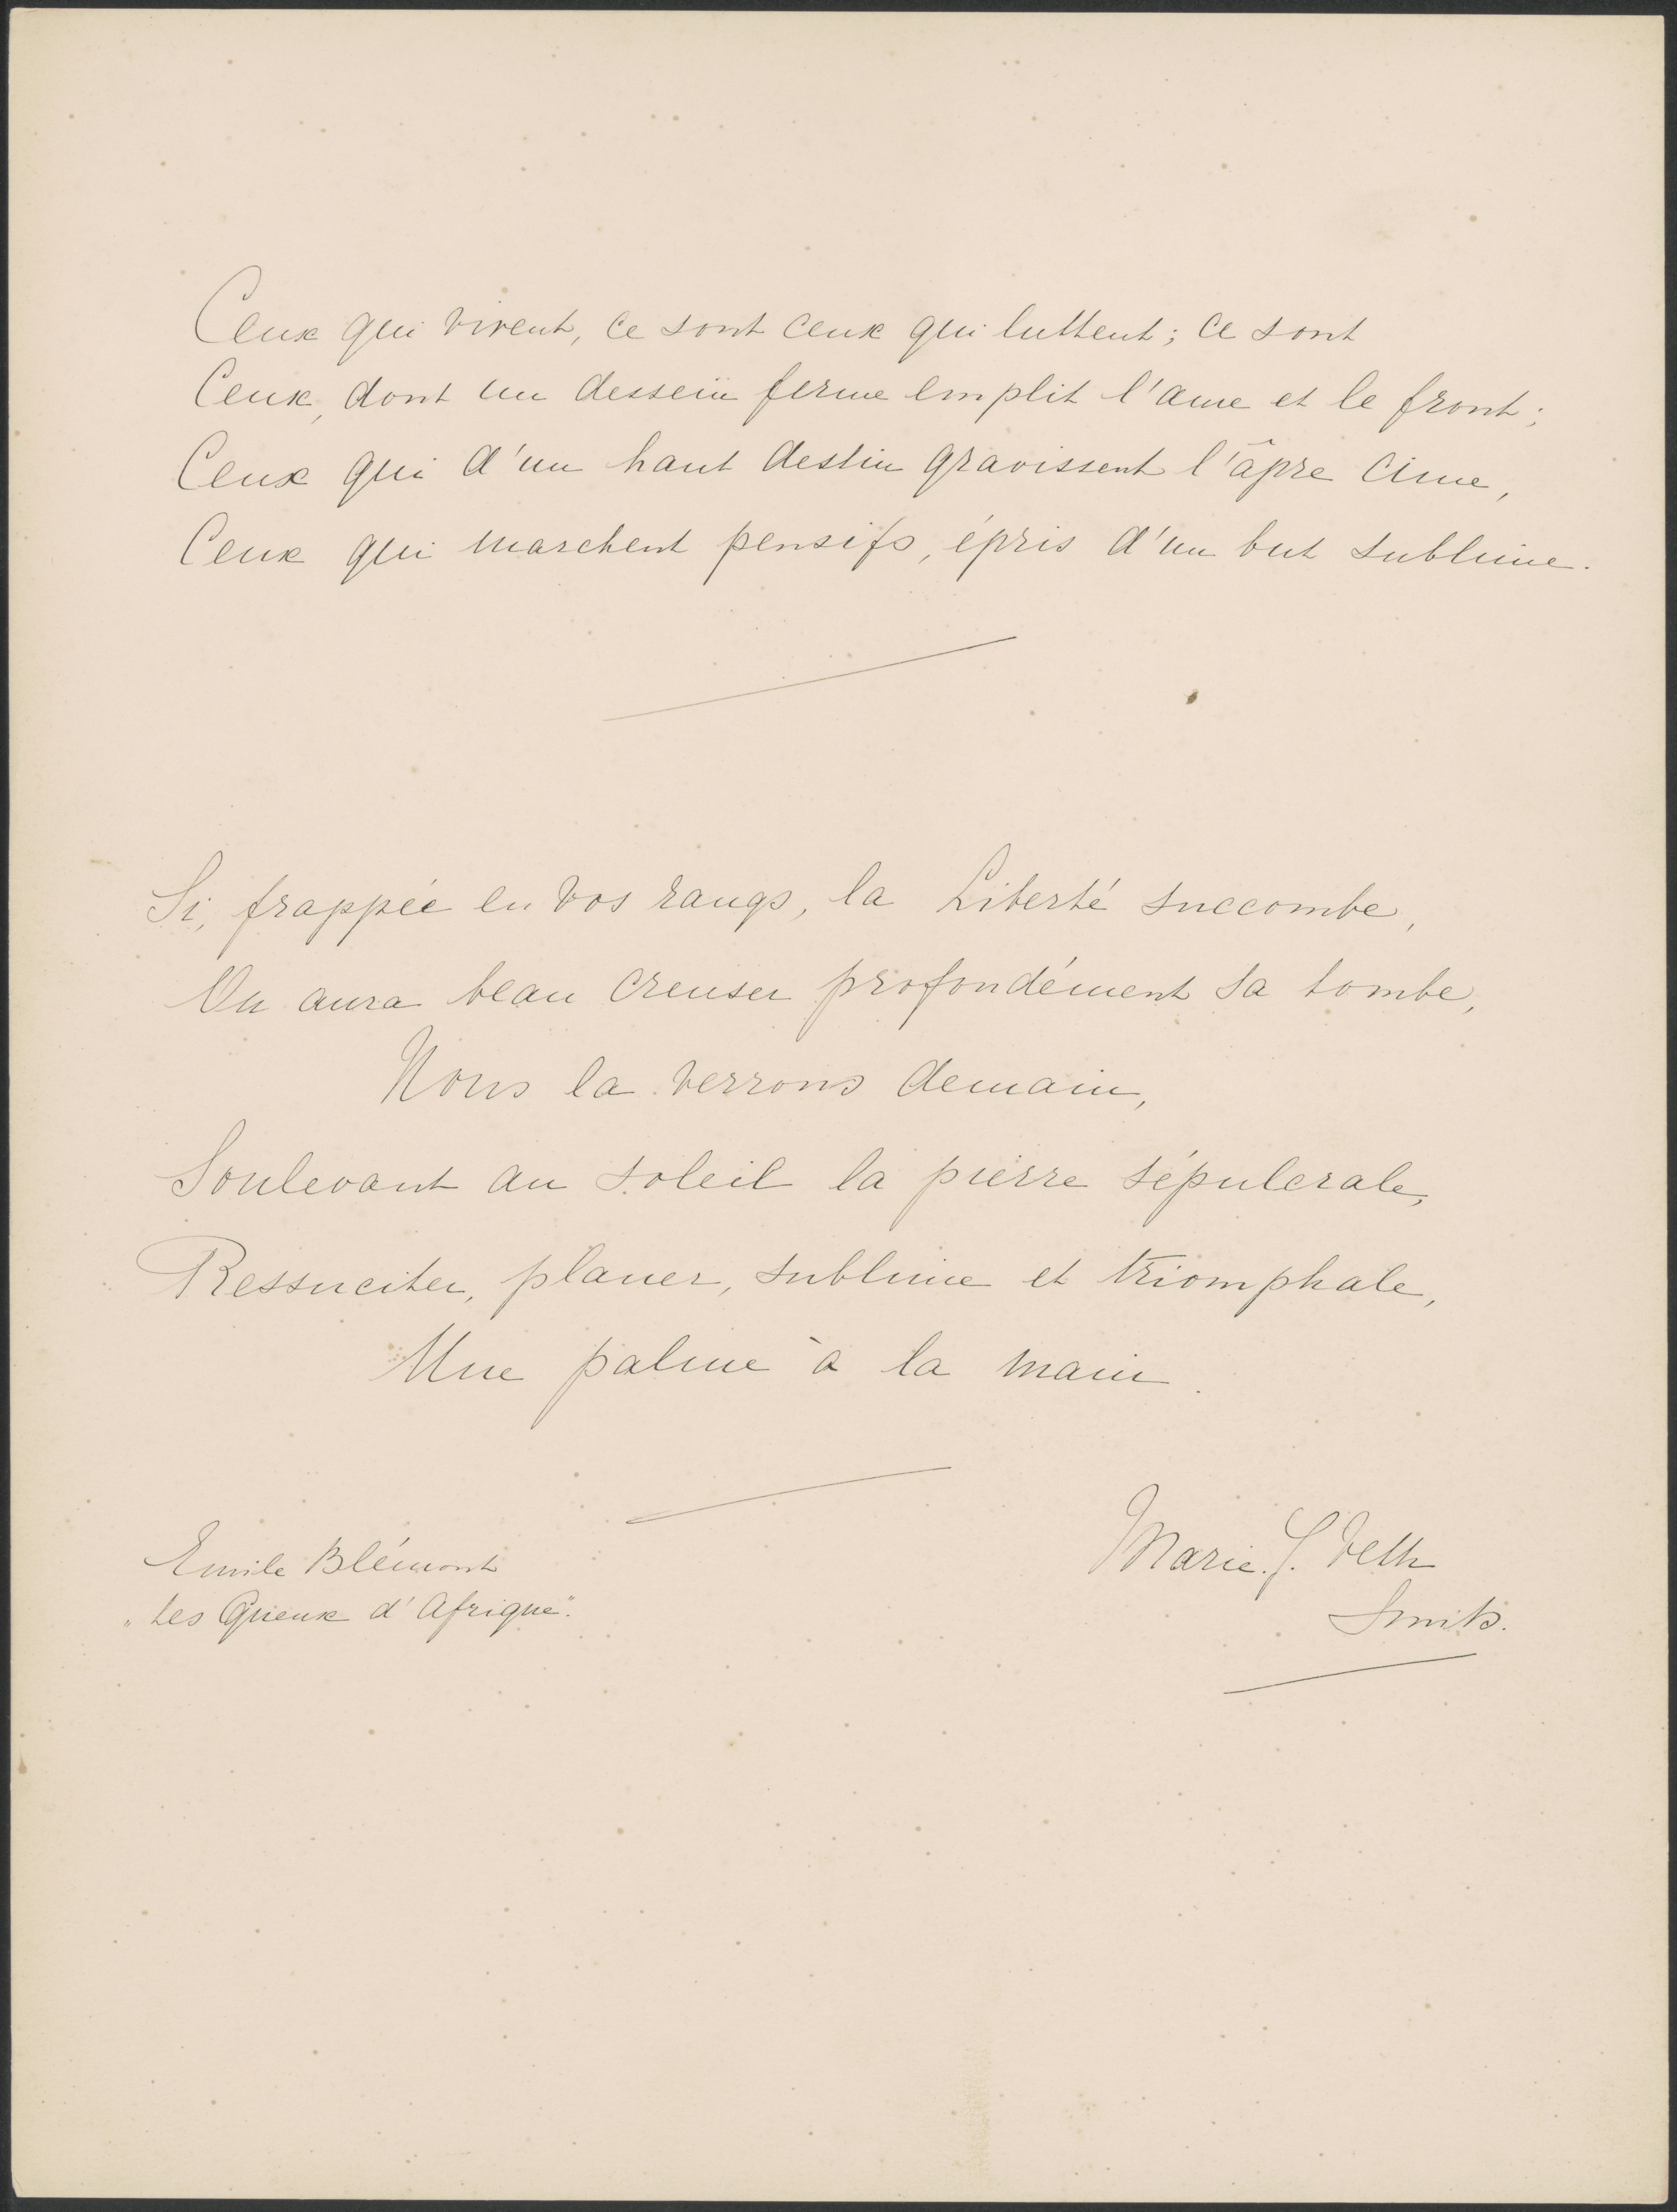 Ceux qui vivent, ce sont ceux qui luttent; ce sont
Ceux, dont un dessein ferme emplit l'ame et le front;
Ceux qui d'un haut destin gravissent l'âpre cime,
Ceux qui marchent pensifs, épris d'un but sublime.
Si, frappée en vos rangs, la Liberté succombe,
On aura beau creuser profondément sa tombe,
Nous la verrons demain,
Soulevant au soleil la pierre sépulcrale,
Ressuciter, planer, sublime et triomphale,
Une palme à la main.
Emile Blémont
„Les Gueux d'Afrique".
Marie. J. Veth
Smits.